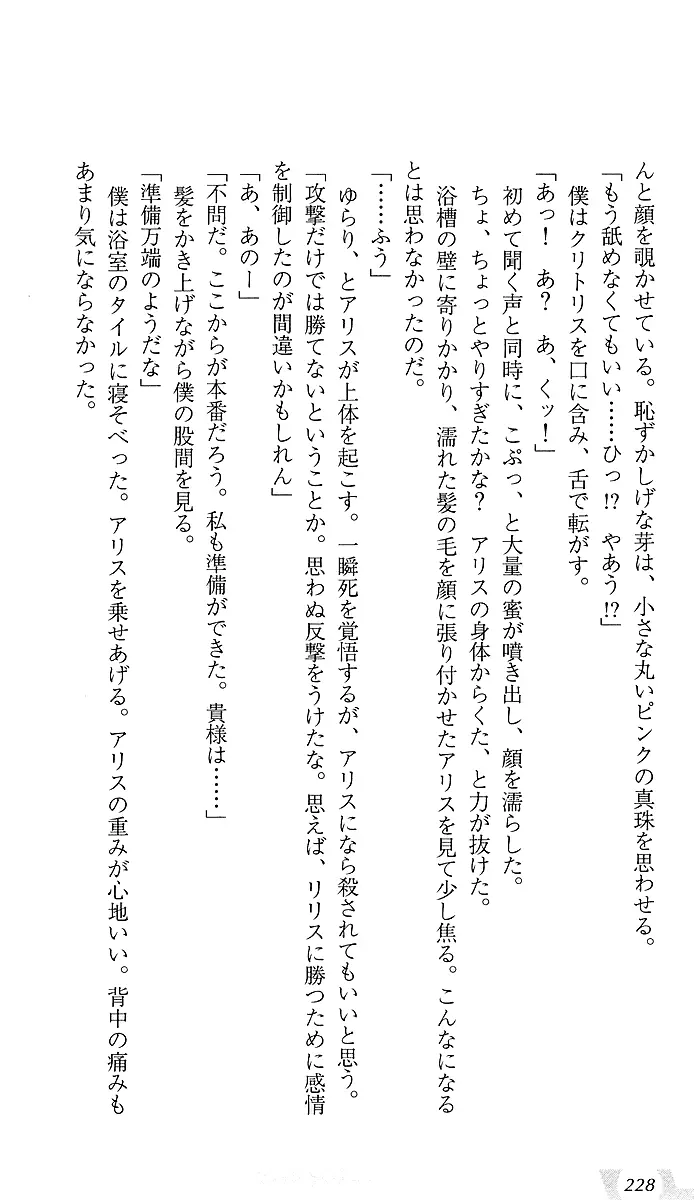 んと顔を覗かせている。恥ずかしげな芽は、小さな丸いピンクの真珠を思わせる。
「もう舐めなくてもいい……ひっ!?　やあう!?」
僕はクリトリスを口に含み、舌で転がす。
「あっ！　あ？　あ、くッ！」
初めて聞く声と同時に、こぷっ、と大量の蜜が噴き出し、顔を濡らした。
ちょ、ちょっとやりすぎたかな？　アリスの身体からくた、と力が抜けた。
浴槽の壁に寄りかかり、濡れた髪の毛を顔に張り付かせたアリスを見て少し焦る。こんなになる
とは思わなかったのだ。
「……ふう」
ゆらり、とアリスが上体を起こす。一瞬死を覚悟するが、アリスになら殺されてもいいと思う。
「攻撃だけでは勝てないということか。思わぬ反撃をうけたな。思えば、リリスに勝つために感情
を制御したのが間違いかもしれん」
「あ、あのー」
「不問だ。ここからが本番だろう。私も準備ができた。貴様は……」
髪をかき上げながら僕の股間を見る。
「準備万端のようだな」
僕は浴室のタイルに寝そべった。アリスを乗せあげる。アリスの重みが心地いい。背中の痛みも
あまり気にならなかった。
228